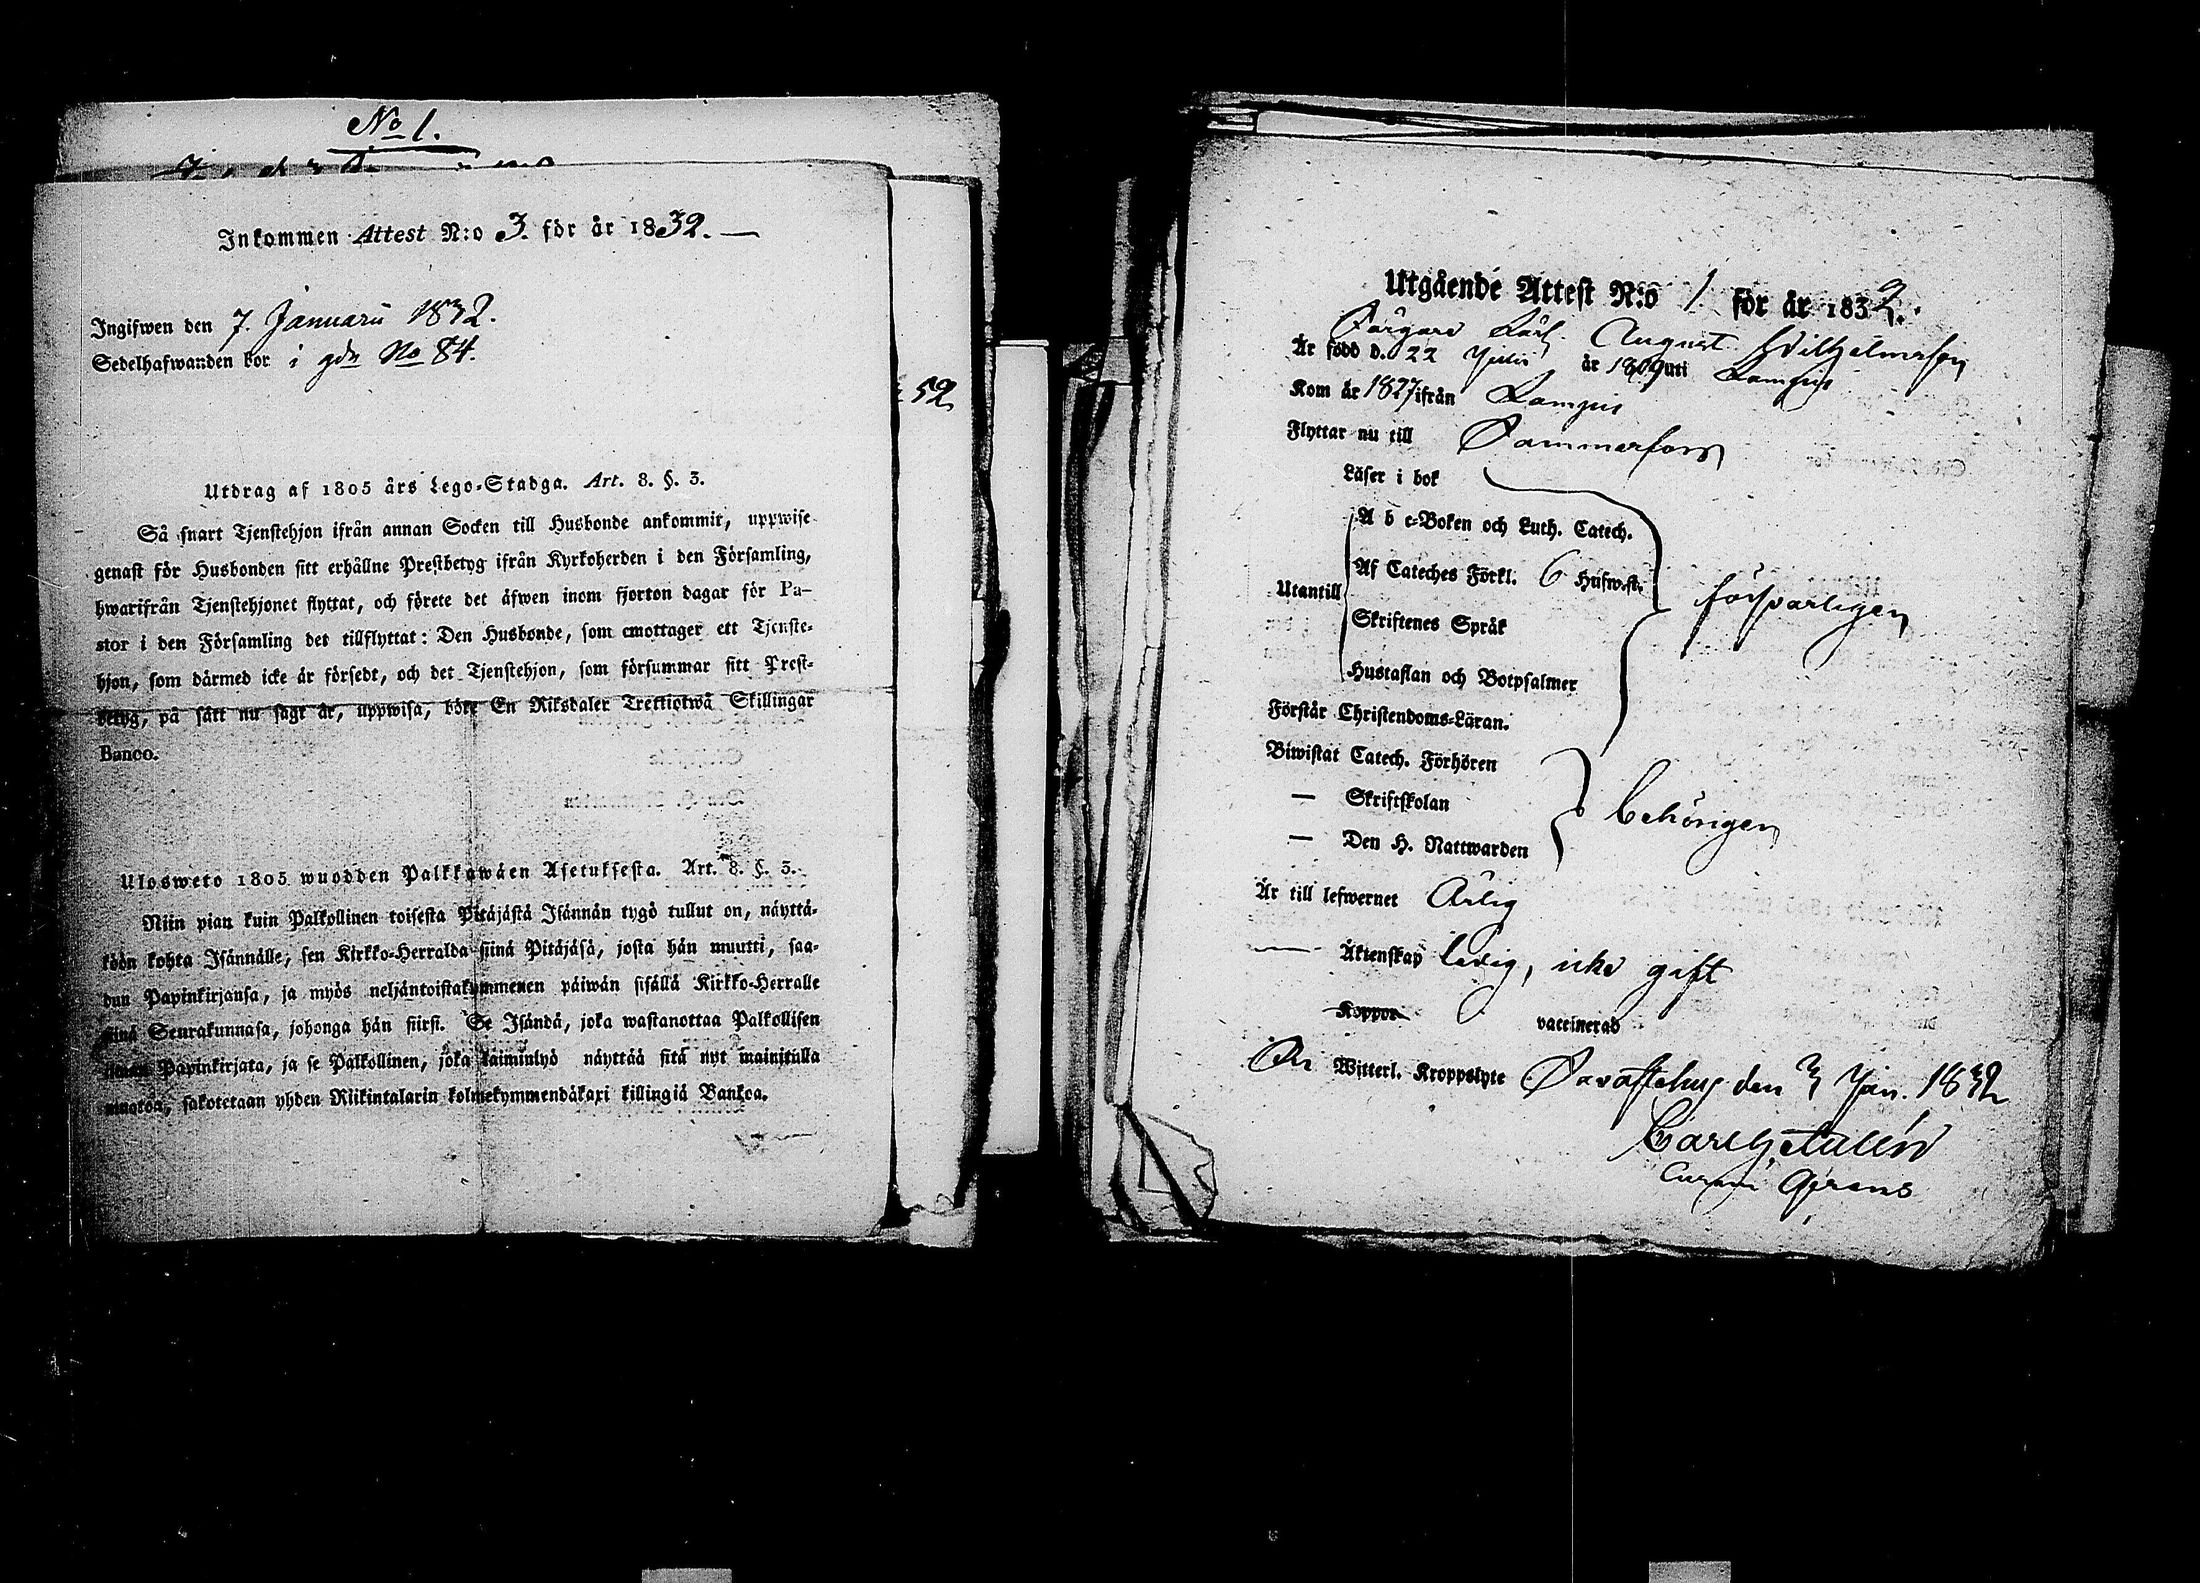 No 1.
Inkommen Attest N:o 3. för år 1832. —
Ingifwen den 7. Januarii 1832.
Sedelhafwanden bor i gdn No 84.
52
Utdrag af 1805 års Lego-Stadga. Art. 8. §. 3.
Så snart Tjenstehjon ifrån annan Socken till Husbonde ankommit, uppwise
genast för Husbonden sitt erhållne Prestbetyg ifrån Kyrkoherden i den Församling,
hwarifrån Tjenstehjonet flyttat, och förete det äfwen inom fjorton dagar för Pa-
stor i den Församling det tillflyttat: Den Husbonde, som emottager ett Tjenste-
hjon, som därmed icke är försedt, och det Tjenstehjon, som försummar sitt Prest-
betyg, på sätt nu sagt är, uppwisa, böte En Riksdaler Trettiotwå Skillingar
Banco.
Ulosweto 1805 wuodden Palkkawäen Asetuksesta. Art. 8. §. 3.
Niin pian kuin Palkollinen toisesta Pitäjästä Isännän tygö tullut on, näyttä-
köön kohta Isännälle, sen Kirkko-Herralda siinä Pitäjäsä, josta hän muutti, saa-
dun Papinkirjansa, ja myös neljäntoistakymmenen päiwän sisällä Kirkko-Herralle
siinä Seurakunnasa, johonga hän siirsi. Se Isändä, joka wastanottaa Palkollisen
ilman Papinkirjata, ja se Palkollinen, joka laiminlyö näyttää sitä nyt mainitulla
muotoa, sakotetaan yhden Riikintalarin kolmekymmendäkaxi killingiä Bankoa.
Utgående Attest N:o 1. för år 1832.
Färgare Carl August Wilhelmsson
Är född d. 22 Julii år 1809 uti Lampis
Kom år 1827 ifrån Lampis
Flyttar nu till Tammerfors
Läser i bok
A b c-Boken och Luth. Catech.
Af Cateches Förkl. 6 Hufw.st.
Utantill
försvarligen
Skriftenes Språk
Hustaflan och Botpsalmer
Förstår Christendoms-Läran.
Biwistat Catech. Förhören
— Skriftskolan
behörigen
— Den H. Nattwarden
Är till lefwernet Ärlig
— Äktenskap ledig, icke gift
Koppor vaccinerad
Witterl. Kroppslyte Tavastehus den 3 Jan. 1832